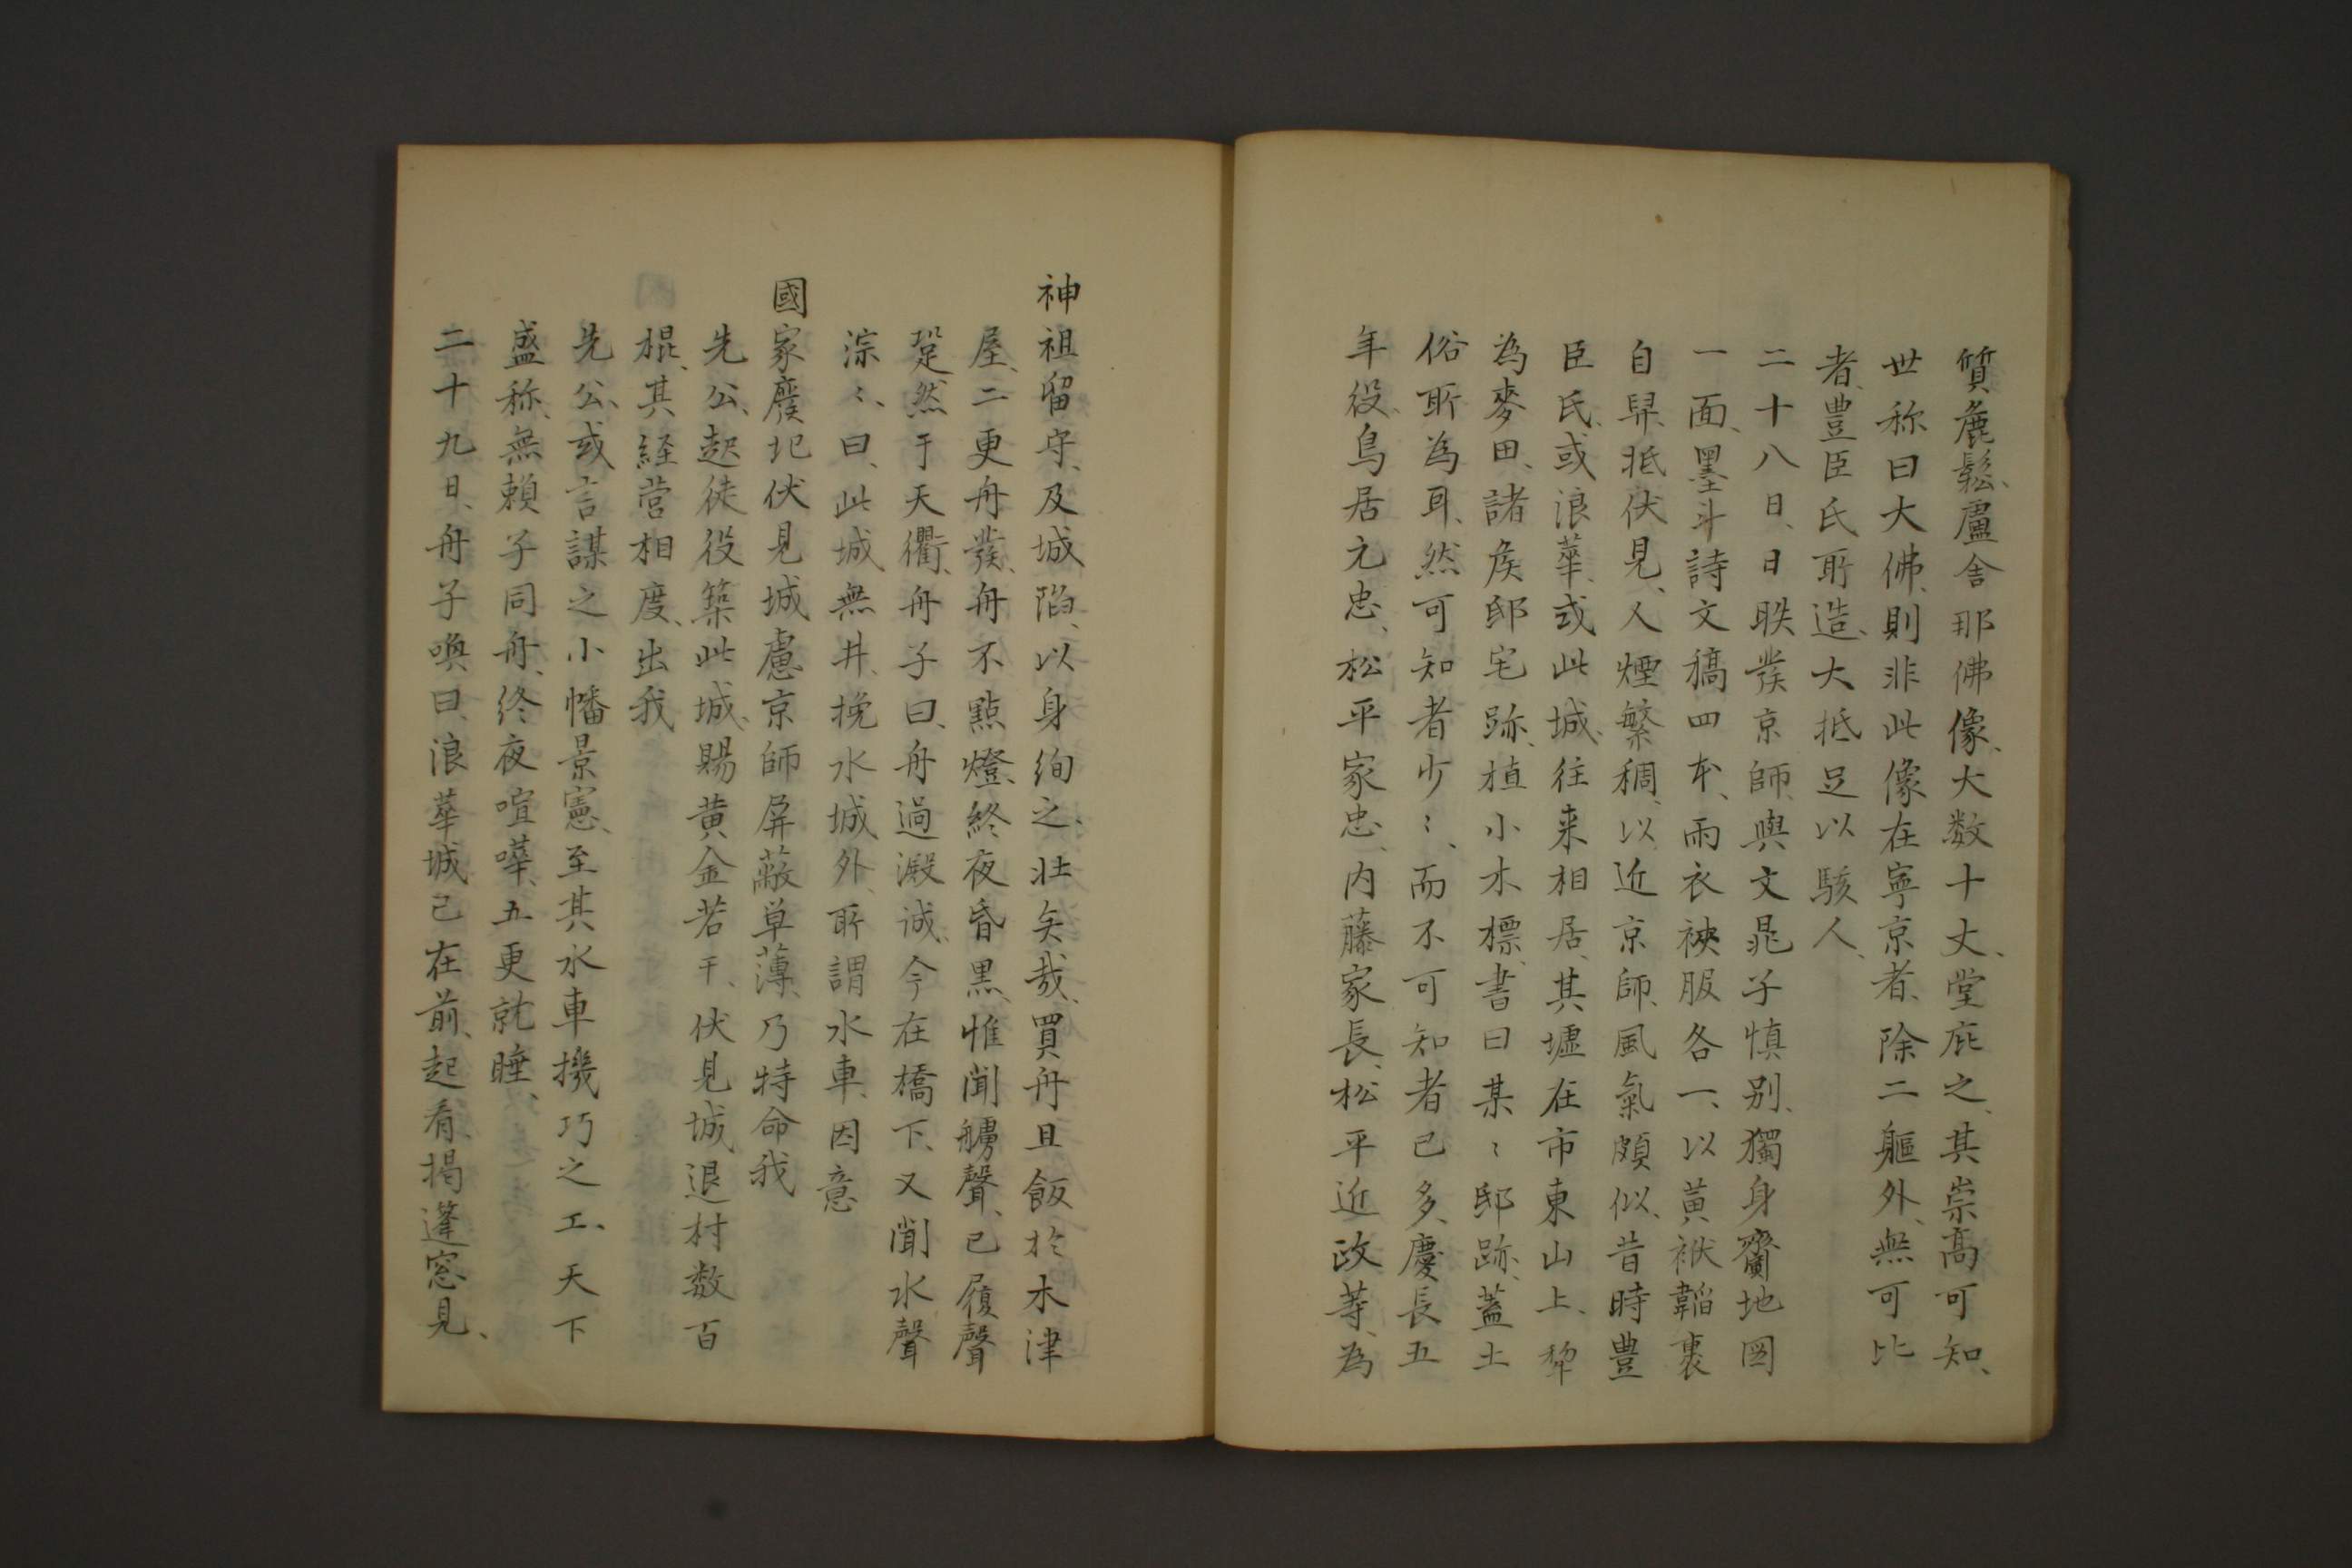 質麁鬆、盧舍那佛像、大数十丈、堂庇之、其崇髙可知、
世称曰大佛、則非此像在寧京者、除二軀外、無可比
者、豊臣氏所造、大抵足以駭人、
二十八日、日昳發京師、與文晁子慎別、獨身齎地圖
一面、墨斗詩文稿四本、雨衣裌服各一、以黄袱韜裹
自舁、抵伏見、人煙繁稠、以近京師、風氣頗似、昔時豊
臣氏、或浪華、或此城、往来相居、其墟在市東山上、犂
為麥田、諸矦邸宅跡、植小木標、書曰某〻邸跡、蓋土
俗所為耳、然可知者少〻、而不可知者已多、慶長五
年役、鳥居元忠、松平家忠、内藤家長、松平近政等、為
神祖留守、及城陷、以身絢之、壮矣哉、買舟且飯於木津
屋、二更舟發、舟不點燈、終夜昏黒、惟聞艣聲、已履聲
跫然于天衢、舟子曰、舟過澱诚、今在橋下、又聞水聲
淙〻、曰、此城無井、挽水城外、所謂水車、因意
國家廢圯伏見城、慮京師屏蔽単薄、乃特命我
先公、起徒役築此城、賜黄金若干、伏見城退材数百
棍、其経営相度、出我
先公、或言謀之小幡景憲、至其水車機巧之工、天下
盛称、無頼子同舟、終夜喧嘩、五更就睡、
二十九日、舟子喚曰、浪華城已在前、起看、掲篷窓見、